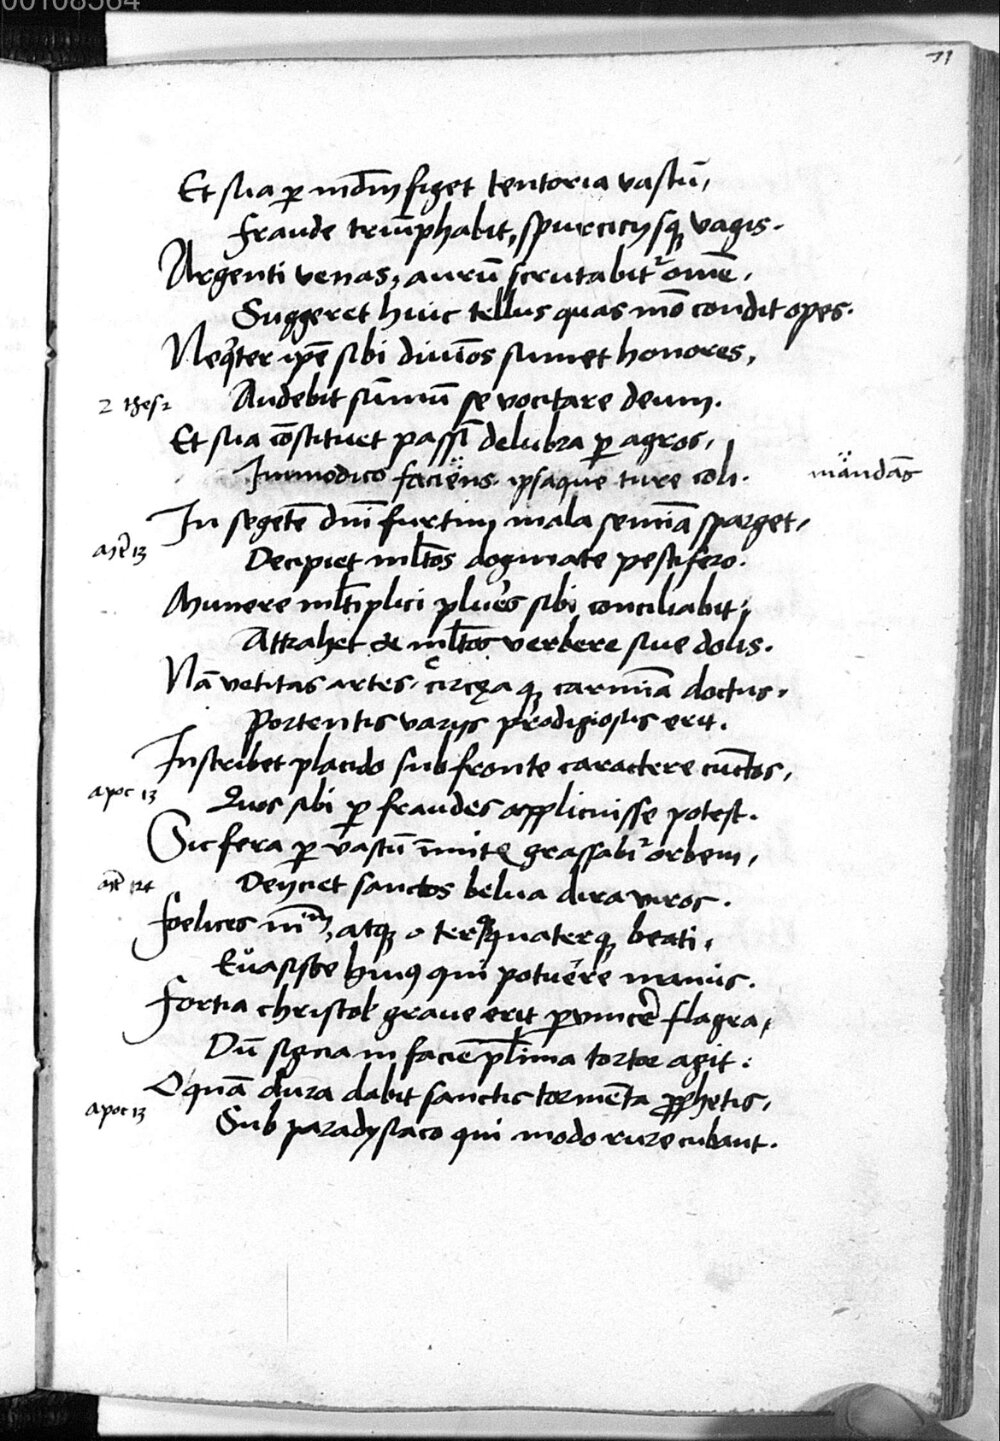 00108564
71
Et sua ꝑ mūdm figet tentoria vastū,
Fraude triūphabit, spurcicijsqꝫ vagis.
Argenti venas, aurū scrutabitᷣ omē,
Suggeret huic tellus quas mō condit opes.
Neqͣter ip̄e sibi diuīos sumet honores,
2 thes 2
Audebit sūmū se vocitare deum.
Et sua cōstituet passī delubra ꝑ agros,
Immodico faciens ipsaque ture coli.
mandās
In segetē dn̄i furtim mala semīa sparget,
Decipiet ml̄tos dogmate pestifero.
Munere ml̄tiplici plures sibi conciliabit,
Attrahet & ml̄tos verbere siue dolis.
Nā vetitas artes, circęaqꝫ carmīa doctus,
Portentis varijs prodigiosus erit.
Inscribet placido sub fronte caractere cūctos,
apoc 13
Quos sibi ꝑ fraudes applicuisse potest.
Sic fera ꝑ vastū īmitis grassabiᷣ orbem,
Deijciet sanctos belua dira viros.
Foelices nīm, atqꝫ o terqꝫ quaterqꝫ beati,
Euasisse huiꝰ qui potuere manus.
Fortia christol' graue erit ꝑuincere flagra,
Dū signa in faciē pl'ima tortor agit:
O quā dura dabit sanctis tormēta ꝓphetis,
apoc 13
Sub paradysiaco qui modo rure cubant.